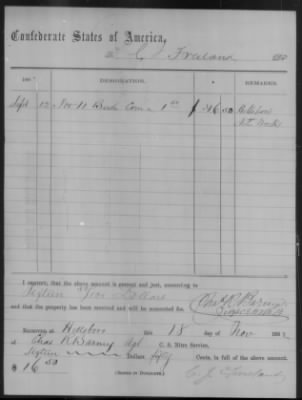 Confederate States of America,
To C. J. Freeland
186
DESIGNATION.
REMARKS.
Sept 12 For 11 Bush Corn 1 50 $ 16 50
I certify, that the above account is correct and just, amounting to
Sixteen 50/100 Dollars
and that the property has been received and will be accounted for.
Received at Hillsboro this 18 day of Nov 186
of Chas R Barney Supt C. S. Nitre Service,
Sixteen Dollars Cents, in full of the above amount.
$ 16 50
(SIGNED IN DUPLICATE.)
C. J. Freeland